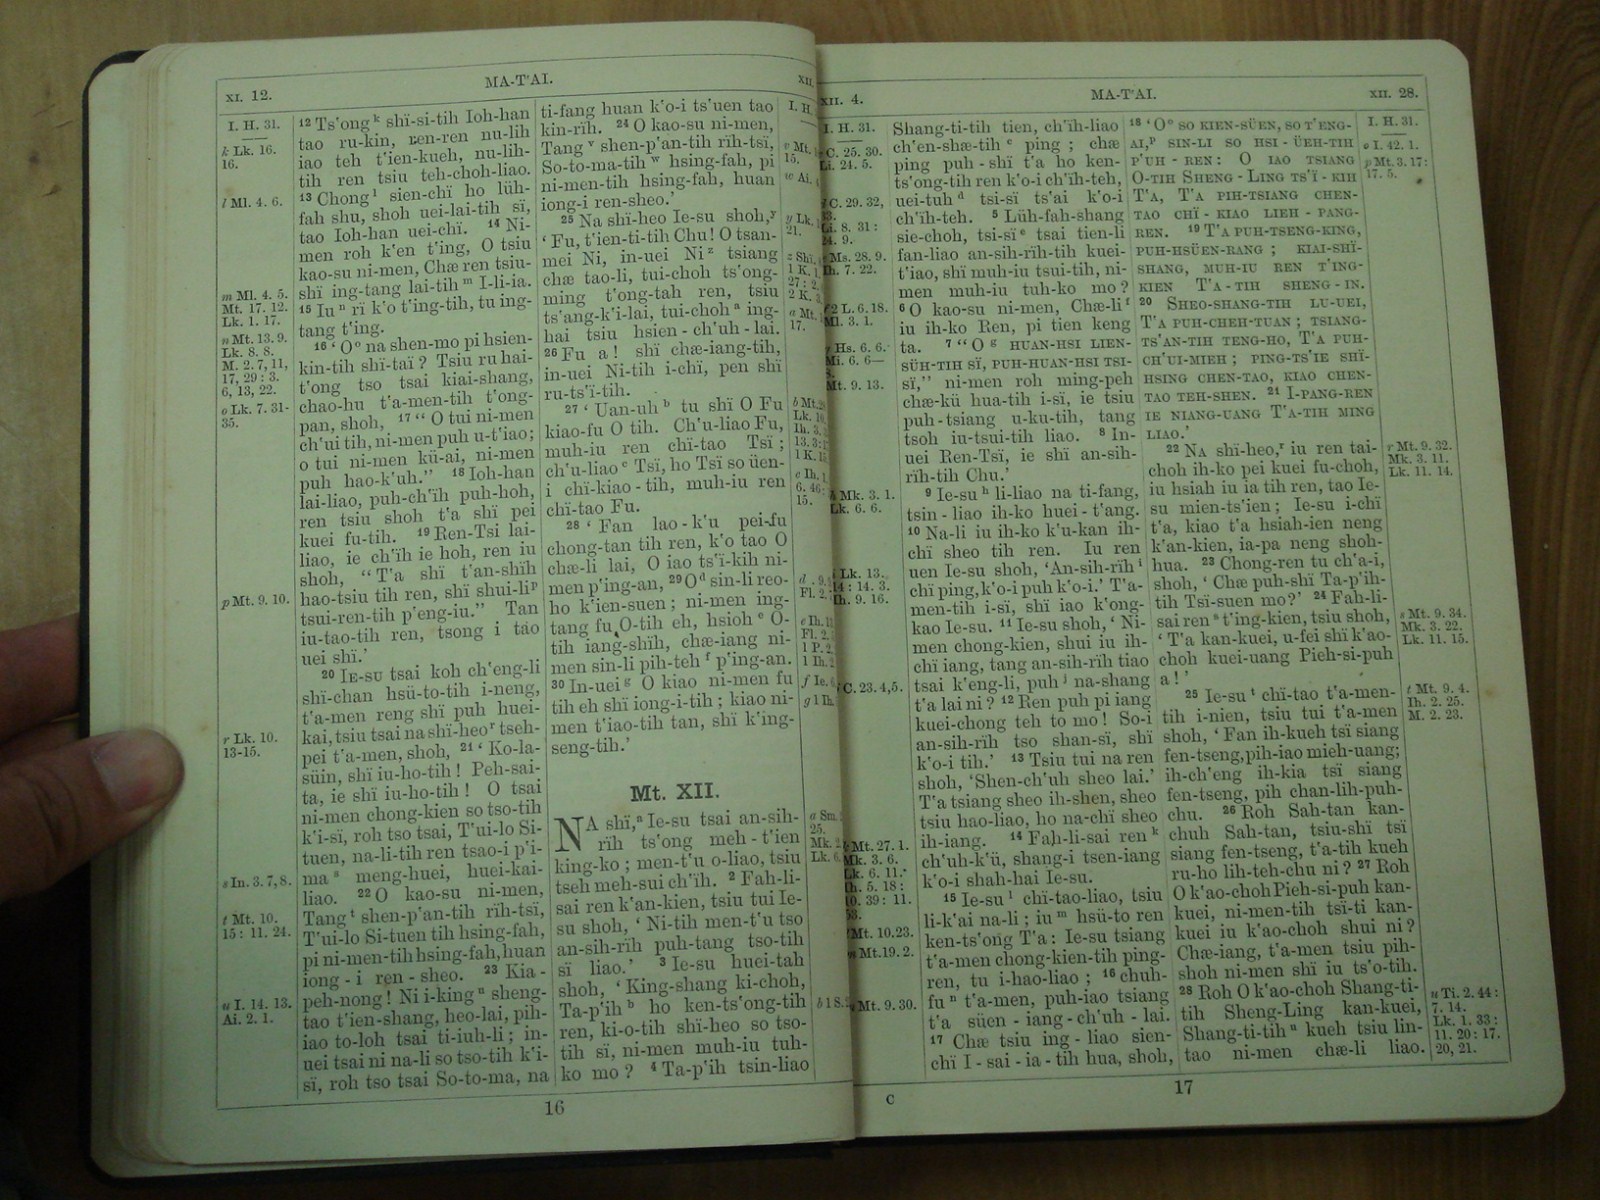 XI. 12.
MA-T'AI.
XII.
I. H. 31.
k Lk. 16.
16.
l Ml. 4. 6.
m Ml. 4. 5.
Mt. 17. 12.
Lk. 1. 17.
n Mt. 13. 9.
Lk. 8. 8.
M. 2. 7, 11,
17, 29 : 3.
6, 13, 22.
o Lk. 7. 31-
35.
p Mt. 9. 10.
r Lk. 10.
13-15.
s In. 3. 7, 8.
t Mt. 10.
15 : 11. 24.
u I. 14. 13.
Ai. 2. 1.
12 Ts'ong k shï-si-tih Ioh-han
tao ru-kin, ren-ren nu-lih
iao teh t'ien-kueh, nu-lih-
tih ren tsiu teh-choh-liao.
13 Chong l sien-chï ho lüh-
fah shu, shoh uei-lai-tih sï,
tao Ioh-han uei-chï. 14 Ni-
men roh k'en t'ing, O tsiu
kao-su ni-men, Chæ ren tsiu-
shï ing-tang lai-tih m I-li-ia.
15 Iu n rï k'o t'ing-tih, tu ing-
tang t'ing.
16 ' O o na shen-mo pi hsien-
kin-tih shï-tai ? Tsiu ru hai-
t'ong tso tsai kiai-shang,
chao-hu t'a-men-tih t'ong-
pan, shoh, 17 " O tui ni-men
ch'ui tih, ni-men puh u-t'iao ;
o tui ni-men kü-ai, ni-men
puh hao-k'uh." 18 Ioh-han
lai-liao, puh-ch'ïh puh-hoh,
ren tsiu shoh t'a shï pei
kuei fu-tih. 19 Ren-Tsi lai-
liao, ie ch'ïh ie hoh, ren iu
shoh, " T'a shï t'an-shïh
hao-tsiu tih ren, shï shui-li p
tsui-ren-tih p'eng-iu." Tan
iu-tao-tih ren, tsong i tao
uei shï.'
20 IE-SU tsai koh ch'eng-li
shï-chan hsü-to-tih i-neng,
t'a-men reng shï puh huei-
kai, tsiu tsai na shï-heo r tseh-
pei t'a-men, shoh, 21 ' Ko-la-
süin, shï iu-ho-tih ! Peh-sai-
ta, ie shï iu-ho-tih ! O tsai
ni-men chong-kien so tso-tih
k'i-sï, roh tso tsai, T'ui-lo Si-
tuen, na-li-tih ren tsao-i p'i-
ma s meng-huei, huei-kai-
liao. 22 O kao-su ni-men,
Tang t shen-p'an-tih rïh-tsï,
T'ui-lo Si-tuen tih hsing-fah,
pi ni-men-tih hsing-fah, huan
iong - i ren - sheo. 23 Kia -
peh-nong ! Ni i-king u sheng-
tao t'ien-shang, heo-lai, pih-
iao to-loh tsai ti-iuh-li ; in-
uei tsai ni na-li so tso-tih k'i-
sï, roh tso tsai So-to-ma, na
ti-fang huan k'o-i ts'uen tao
kin-rïh. 24 O kao-su ni-men,
Tang v shen-p'an-tih rïh-tsï,
So-to-ma-tih w hsing-fah, pi
ni-men-tih hsing-fah, huan
iong-i ren-sheo.'
25 Na shï-heo Ie-su shoh, y
' Fu, t'ien-ti-tih Chu ! O tsan-
mei Ni, in-uei Ni z tsiang
chæ tao-li, tui-choh ts'ong-
ming t'ong-tah ren, tsiu
ts'ang-k'i-lai, tui-choh a ing-
hai tsiu hsien - ch'uh - lai.
26 Fu a ! shï chæ-iang-tih,
in-uei Ni-tih i-chï, pen shï
ru-ts'ï-tih.
27 ' Uan-uh b tu shï O Fu
kiao-fu O tih. Ch'u-liao Fu,
muh-iu ren chï-tao Tsï ;
ch'u-liao c Tsï, ho Tsï so üen-
i chï-kiao - tih, muh-iu ren
chï-tao Fu.
28 ' Fan lao - k'u pei-fu
chong-tan tih ren, k'o tao O
chæ-li lai, O iao ts'ï-kih ni-
men p'ing-an, 29 O d sin-li reo-
ho k'ien-suen ; ni-men ing-
tang fu O-tih eh, hsioh e O-
tih iang-shïh, chæ-iang ni-
men sin-li pih-teh f p'ing-an.
30 In-uei g O kiao ni-men fu
tih eh shï iong-i-tih ; kiao ni-
men t'iao-tih tan, shï k'ing-
seng-tih.'
Mt. XII.
NA shï, a Ie-su tsai an-sih-
rïh ts'ong meh - t'ien
king-ko ; men-t'u o-liao, tsiu
tseh meh-sui ch'ïh. 2 Fah-li-
sai ren k'an-kien, tsiu tui Ie-
su shoh, ' Ni-tih men-t'u tso
an-sih-rïh puh-tang tso-tih
sï liao.' 3 Ie-su huei-tah
shoh, ' King-shang ki-choh,
Ta-p'ih b ho ken-ts'ong-tih
ren, ki-o-tih shï-heo so tso-
tih sï, ni-men muh-iu tuh-
ko mo ? 4 Ta-p'ih tsin-liao
I. H.
v Mt.
15.
w Ai.
y Lk.
21.
z Shï.
1 K. 1.
27 : 2.
2 K. 3.
a Mt.
17.
b Mt.
Lk. 10.
Ih. 3.
13. 3 :
1 K. 15.
c Ih. 1.
6. 46 :
15.
Fl. 2.
e Ih. 13.
Fl. 2.
1 P. 2.
1 Ih. 2.
f Ie. 6.
g 1 Ih.
a Sm.
25.
Mk. 2.
Lk. 6.
b 1 S.
16
XII. 4.
MA-T'AI.
XII. 28.
I. H. 31.
C. 25. 30.
Li. 24. 5.
C. 29. 32,
Li. 8. 31 :
24. 9.
Ms. 28. 9.
Ih. 7. 22.
2 L. 6. 18.
Ml. 3. 1.
Hs. 6. 6.
Mi. 6. 6—
Mt. 9. 13.
h Mk. 3. 1.
Lk. 6. 6.
Lk. 13.
14 : 14. 3.
Ih. 9. 16.
C. 23. 4, 5.
Mt. 27. 1.
Mk. 3. 6.
Lk. 6. 11.
Ih. 5. 18 :
10. 39 : 11.
53.
Mt. 10. 23.
m Mt. 19. 2.
Mt. 9. 30.
Shang-ti-tih tien, ch'ïh-liao
ch'en-shæ-tih c ping ; chæ
ping puh - shï t'a ho ken-
ts'ong-tih ren k'o-i ch'ïh-teh,
uei-tuh d tsi-sï ts'ai k'o-i
ch'ïh-teh. 5 Lüh-fah-shang
sie-choh, tsi-sï e tsai tien-li
fan-liao an-sih-rïh-tih kuei-
t'iao, shï muh-iu tsui-tih, ni-
men muh-iu tuh-ko mo ?
6 O kao-su ni-men, Chæ-li f
iu ih-ko Ren, pi tien keng
ta. 7 " O g HUAN-HSI LIEN-
SÜH-TIH SÏ, PUH-HUAN-HSI TSI-
SÏ," ni-men roh ming-peh
chæ-kü hua-tih i-sï, ie tsiu
puh-tsiang u-ku-tih, tang
tsoh iu-tsui-tih liao. 8 In-
uei Ren-Tsï, ie shï an-sih-
rïh-tih Chu.'
9 Ie-su h li-liao na ti-fang,
tsin - liao ih-ko huei - t'ang.
10 Na-li iu ih-ko k'u-kan ih-
chï sheo tih ren. Iu ren
uen Ie-su shoh, ' An-sih-rïh i
chï ping, k'o-i puh k'o-i.' T'a-
men-tih i-sï, shï iao k'ong-
kao Ie-su. 11 Ie-su shoh, ' Ni-
men chong-kien, shui iu ih-
chï iang, tang an-sih-rïh tiao
tsai k'eng-li, puh j na-shang
t'a lai ni ? 12 Ren puh pi iang
kuei-chong teh to mo ! So-i
an-sih-rïh tso shan-sï, shï
k'o-i tih.' 13 Tsiu tui na ren
shoh, ' Shen-ch'uh sheo lai.'
T'a tsiang sheo ih-shen, sheo
tsiu hao-liao, ho na-chï sheo
ih-iang. 14 Fah-li-sai ren k
ch'uh-k'ü, shang-i tsen-iang
k'o-i shah-hai Ie-su.
15 Ie-su l chï-tao-liao, tsiu
li-k'ai na-li ; iu m hsü-to ren
ken-ts'ong T'a : Ie-su tsiang
t'a-men chong-kien-tih ping-
ren, tu i-hao-liao ; 16 chuh-
fu n t'a-men, puh-iao tsiang
t'a süen - iang - ch'uh - lai.
17 Chæ tsiu ing - liao sien-
chï I - sai - ia - tih hua, shoh,
18 ' O o SO KIEN-SÜEN, SO T'ENG-
AI, p SIN-LI SO HSI - ÜEH-TIH
P'UH - REN : O IAO TSIANG
O-TIH SHENG - LING TS'Ï - KIH
T'A, T'A PIH-TSIANG CHEN-
TAO CHÏ - KIAO LIEH - PANG-
REN. 19 T'A PUH-TSENG-KING,
PUH-HSÜEN-RANG ; KIAI-SHÏ-
SHANG, MUH-IU REN T'ING-
KIEN T'A - TIH SHENG - IN.
20 SHEO-SHANG-TIH LU-UEI,
T'A PUH-CHEH-TUAN ; TSIANG-
TS'AN-TIH TENG-HO, T'A PUH-
CH'UI-MIEH ; PING-TS'IE SHÏ-
HSING CHEN-TAO, KIAO CHEN-
TAO TEH-SHEN. 21 I-PANG-REN
IE NIANG-UANG T'A-TIH MING
LIAO.'
22 NA shï-heo, r iu ren tai-
choh ih-ko pei kuei fu-choh,
iu hsiah iu ia tih ren, tao Ie-
su mien-ts'ien ; Ie-su i-chï
t'a, kiao t'a hsiah-ien neng
k'an-kien, ia-pa neng shoh-
hua. 23 Chong-ren tu ch'a-i,
shoh, ' Chæ puh-shï Ta-p'ih-
tih Tsï-suen mo ?' 24 Fah-li-
sai ren s t'ing-kien, tsiu shoh,
' T'a kan-kuei, u-fei shï k'ao-
choh kuei-uang Pieh-si-puh
a ! '
25 Ie-su t chï-tao t'a-men-
tih i-nien, tsiu tui t'a-men
shoh, ' Fan ih-kueh tsï siang
fen-tseng, pih-iao mieh-uang ;
ih-ch'eng ih-kia tsï siang
fen-tseng, pih chan-lih-puh-
chu. 26 Roh Sah-tan kan-
chuh Sah-tan, tsiu-shï tsï
siang fen-tseng, t'a-tih kueh
ru-ho lih-teh-chu ni ? 27 Roh
O k'ao-choh Pieh-si-puh kan-
kuei, ni-men-tih tsï-ti kan-
kuei iu k'ao-choh shui ni ?
Chæ-iang, t'a-men tsiu pih-
shoh ni-men shï iu ts'o-tih.
28 Roh O k'ao-choh Shang-ti-
tih Sheng-Ling kan-kuei,
Shang-ti-tih u kueh tsiu lin-
tao ni-men chæ-li liao.
I. H. 31.
o I. 42. 1.
p Mt. 3. 17 :
17. 5.
r Mt. 9. 32.
Mk. 3. 11.
Lk. 11. 14.
s Mt. 9. 34.
Mk. 3. 22.
Lk. 11. 15.
t Mt. 9. 4.
Ih. 2. 25.
M. 2. 23.
u Ti. 2. 44 :
7. 14.
Lk. 1. 33 :
11. 20 : 17.
20, 21.
C
17